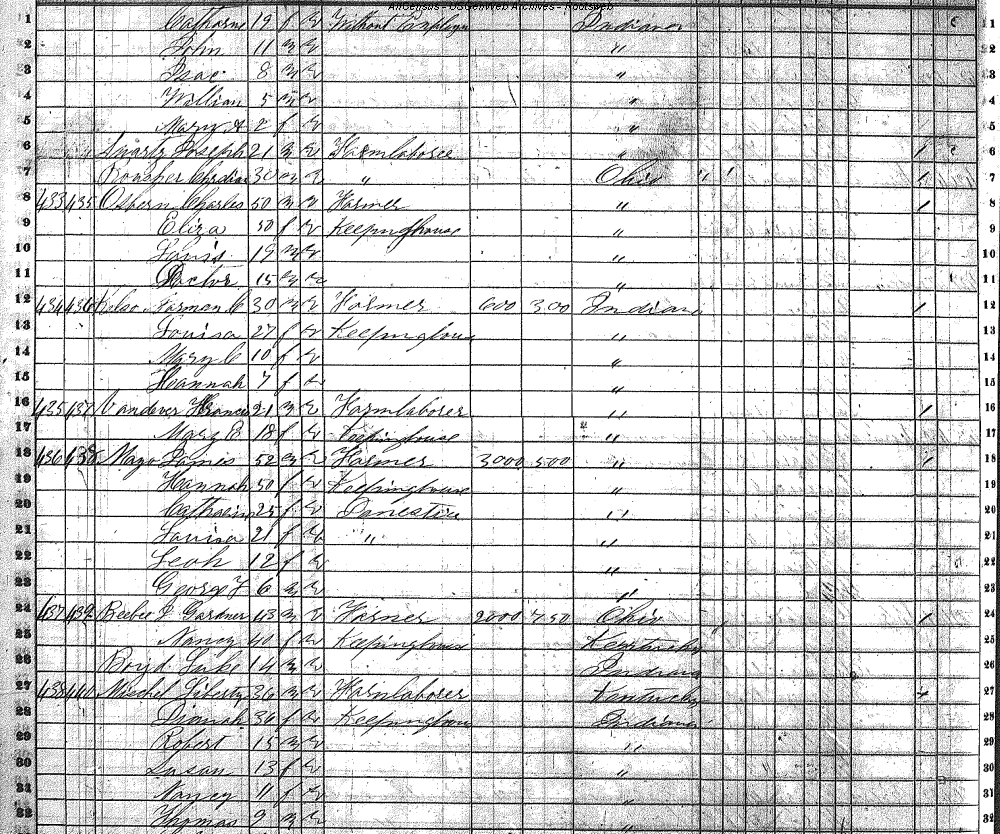 1 19 f W Without Indiana 1
2 John 11 m W " 2
3 Isac 8 m W " 3
4 William 5 m W " 4
5 Mary A 2 f W " 5
6 Swartz Joseph 21 m W Farmlaborer " 1 6
7 30 m W " Ohio 1 7
8 433 435 Osbern Charles 50 m W Farmer " 1 8
9 Eliza 50 f W Keepinghouse " 9
10 Louis 19 m W " 10
11 Doctor 15 m W " 11
12 434 436 Kelso C 30 m W Farmer 600 300 Indiana 1 12
13 Louisa 27 f W Keepinghouse " 13
14 Mary C 10 f W " 14
15 Hannah 7 f W " 15
16 435 437 Vandever 21 m W Farmlaborer " 1 16
17 Mary E 18 f W Keepinghouse " 17
18 436 438 James 52 m W Farmer 3000 500 " 1 18
19 Hannah 50 f W Keepinghouse " 19
20 25 f W " 20
21 Louisa 21 f W " " 21
22 Leah 12 f W " 22
23 George F 6 m W " 23
24 437 439 Beebee Gardner 43 m W Farmer 2000 750 Ohio 1 24
25 Nancy 40 f W Keepinghouse Kentucky 25
26 Boyd Luke 14 m W Indiana 26
27 438 440 Liberty 36 m W Farmlaborer Kentucky 27
28 Dianah 36 f W Keepinghouse Indiana 28
29 Robert 15 m W " 29
30 Susan 13 f W " 30
31 Nancy 11 f W " 31
32 Thomas 9 m W " 32